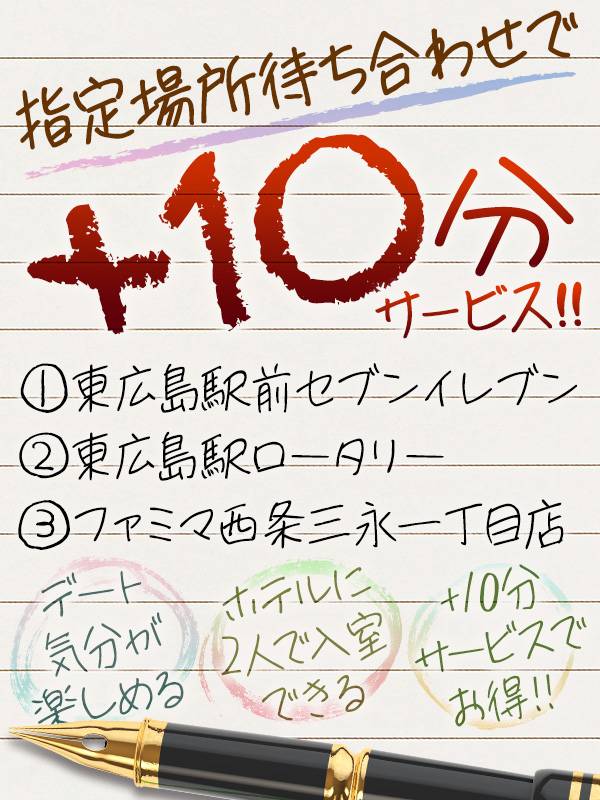 指定場所待ち合わせで
+10分
サービス!!
①東広島駅前セブンイレブン
②東広島駅ロータリー
③ファミマ西条三永一丁目店
デート
気分が
楽しめる
ホテルに
2人で入室
できる
+10分
サービスで
お得!!